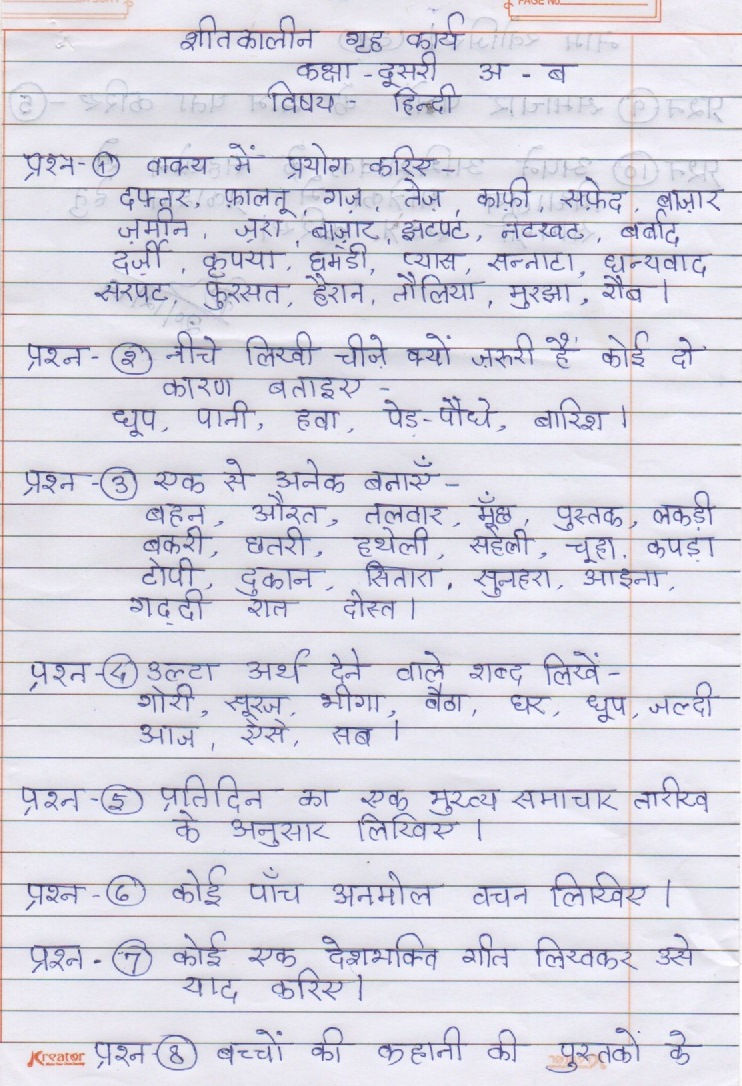 PAGE No.
शीतकालीन गृह कार्य
कक्षा - दूसरी अ - ब
विषय - हिन्दी
प्रश्न - ① वाक्य में प्रयोग करिए -
दफ्तर, फ़ालतू, गज़, तेज़, काफ़ी, सफ़ेद, बाज़ार
ज़मीन, ज़रा, बाज़ार, झटपट, नटखट, बर्बाद
दर्ज़ी, कृपया, घमंडी, प्यास, सन्नाटा, धन्यवाद
सरपट, फुरसत, हैरान, तौलिया, मुरझा, रौब।
प्रश्न - ② नीचे लिखी चीज़े क्यों ज़रूरी हैं कोई दो
कारण बताइए -
धूप, पानी, हवा, पेड़-पौधे, बारिश।
प्रश्न - ③ एक से अनेक बनाएँ -
बहन, औरत, तलवार, मूँछ, पुस्तक, लकड़ी
बकरी, छतरी, हथेली, सहेली, चूहा, कपड़ा
टोपी, दुकान, सितारा, सुनहरा, आइना,
गद्दी रात दोस्त।
प्रश्न - ④ उल्टा अर्थ देने वाले शब्द लिखें -
गोरी, सूरज, भीगा, बैठा, घर, धूप, जल्दी
आज, ऐसे, सब।
प्रश्न - ⑤ प्रतिदिन का एक मुख्य समाचार तारीख
के अनुसार लिखिए।
प्रश्न - ⑥ कोई पाँच अनमोल वचन लिखिए।
प्रश्न - ⑦ कोई एक देशभक्ति गीत लिखकर उसे
याद करिए।
Kreator प्रश्न - ⑧ बच्चों की कहानी की पुस्तकों के